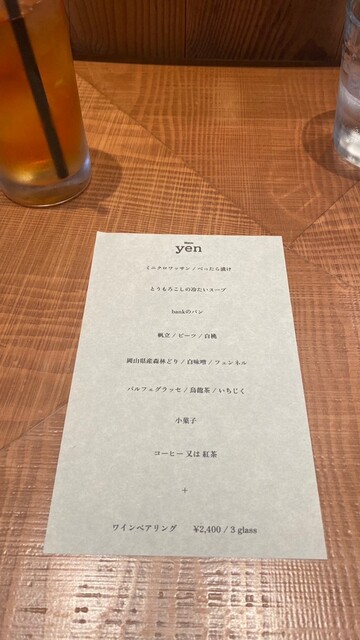 yen
ミニクロワッサン / べったら漬け
とうもろこしの冷たいスープ
bankのパン
帆立 / ビーツ / 白桃
岡山県産森林どり / 白味噌 / フェンネル
パルフェグラッセ / 烏龍茶 / いちじく
小菓子
コーヒー 又は 紅茶
+
ワインペアリング ¥2,400 / 3 glass